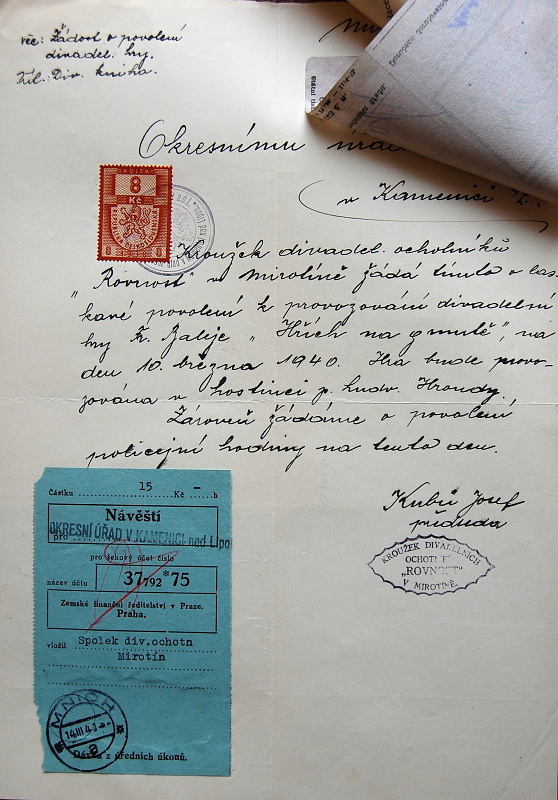 věc: Žádost o povolení
divadel. hry.
Příl.: Div. kniha.
Okresnímu
v Kamenici
KOLEK
8
Kč
8 1939 8
Kroužek divadel. ochotníků
„Rovnost" v Mirotíně žádá tímto o las-
kavé povolení k provozování divadelní
hry Fr. "Hřích na", na
den 10. března 1940. Hra bude provo-
zována v hostinci p. Ludv. Hrondy.
Zároveň žádáme o povolení
policejní hodiny na tento den.
Kubů Josef
předseda
KROUŽEK DIVADELNÍCH
OCHOTNÍKŮ
„ROVNOST"
V MIROTÍNĚ.
Částku 15 Kč — h
Návěští
pro OKRESNÍ ÚŘAD V KAMENICI nad Lipo
pro šekový účet číslo
název účtu 37792*75
Zemské finanční ředitelství v Praze.
Praha.
vložil Spolek div.ochotn
Mirotín
MNICH
14.III.4
a
Dávka z úředních úkonů.